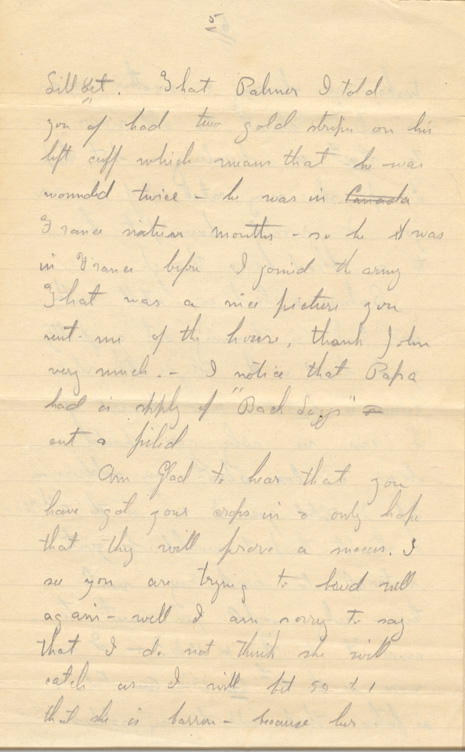 5
Sill yet. That Palmer I told
you of had two gold strips on his
left cuff which means that he was
wounded twice - he was in Canada
France sixteen months - so he was
in France before I joined the army
That was a nice picture you
sent me of the house, thank John
very much. - I notice that Papa
had a supply of "Back
out a
Am Glad to hear that you
have got your crops in & only hope
that they will prove a success. I
see you are trying to breed
again - well I am sorry to say
that I do not think she will
catch as I will bet to 1
that she is barron - because her